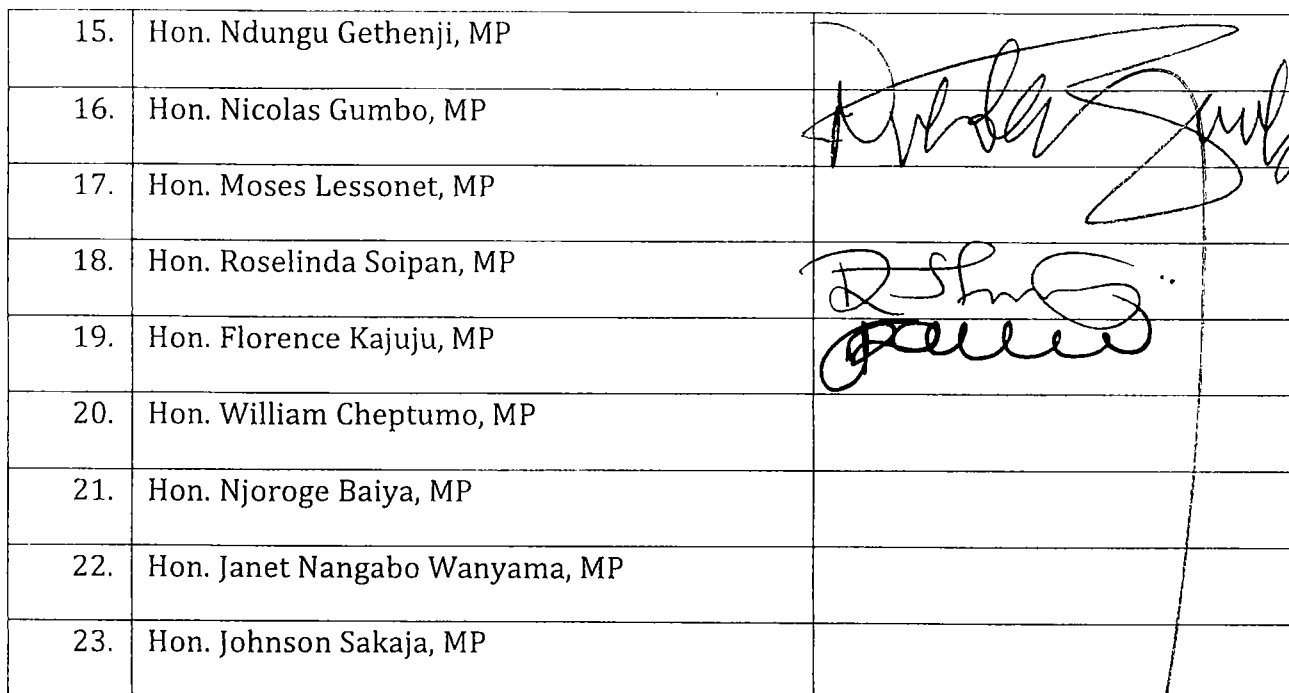 15. Hon. Ndungu Gethenji, MP
16. Hon. Nicolas Gumbo, MP
17. Hon. Moses Lessonet, MP
18. Hon. Roselinda Soipan, MP
19. Hon. Florence Kajuju, MP
20. Hon. William Cheptumo, MP
21. Hon. Njoroge Baiya, MP
22. Hon. Janet Nangabo Wanyama, MP
23. Hon. Johnson Sakaja, MP